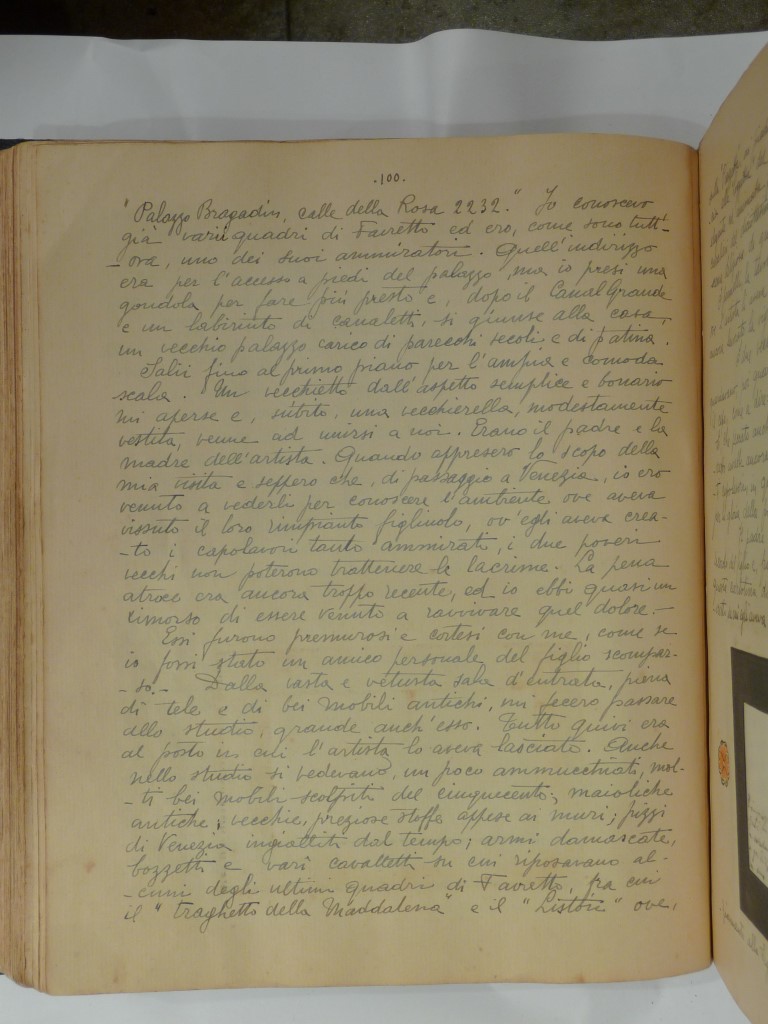 .100.
"Palazzo Bragadin, calle della Rosa 2232." Io conoscevo
già varii quadri di Favretto ed ero, come sono tutt'-
-ora, uno dei suoi ammiratori. Quell'indirizzo
era per l'accesso a piedi del palazzo, ma io presi una
gondola per fare più presto e, dopo il Canal Grande
e un labirinto di canaletti, si giunse alla casa,
un vecchio palazzo carico di parecchi secoli e di patina.
Salii fino al primo piano per l'ampia e comoda
scala. Un vecchietto dall'aspetto semplice e bonario
mi aperse e, subito, una vecchierella, modestamente
vestita, venne ad unirsi a noi. Erano il padre e la
madre dell'artista. Quando appresero lo scopo della
mia visita e seppero che, di passaggio a Venezia, io ero
venuto a vederli per conoscere l'ambiente ove aveva
vissuto il loro rimpianto figliuolo, ov'egli aveva crea-
-to i capolavori tanto ammirati, i due poveri
vecchi non poterono trattenere le lacrime. La pena
atroce era ancora troppo recente, ed io ebbi quasi un
rimorso di essere venuto a ravvivare quel dolore.-
Essi furono premurosi e cortesi con me, come se
io fossi stato un amico personale del figlio scompar-
-so.- Dalla vasta e vetusta sala d'entrata, piena
di tele e di bei mobili antichi, mi fecero passare
allo studio, grande anch'esso. Tutto quivi era
al posto in cui l'artista lo aveva lasciato. Anche
nello studio si vedevano, un poco ammucchiati, mol-
-ti bei mobili scolpiti del cinquecento; maioliche
antiche; vecchie, preziose stoffe appese ai muri; pizzi
di Venezia ingialliti dal tempo; armi damascate,
bozzetti e vari cavalletti su cui riposavano al-
-cuni degli ultimi quadri di Favretto, fra cui
il "traghetto della Maddalena" e il "Liston" ove,